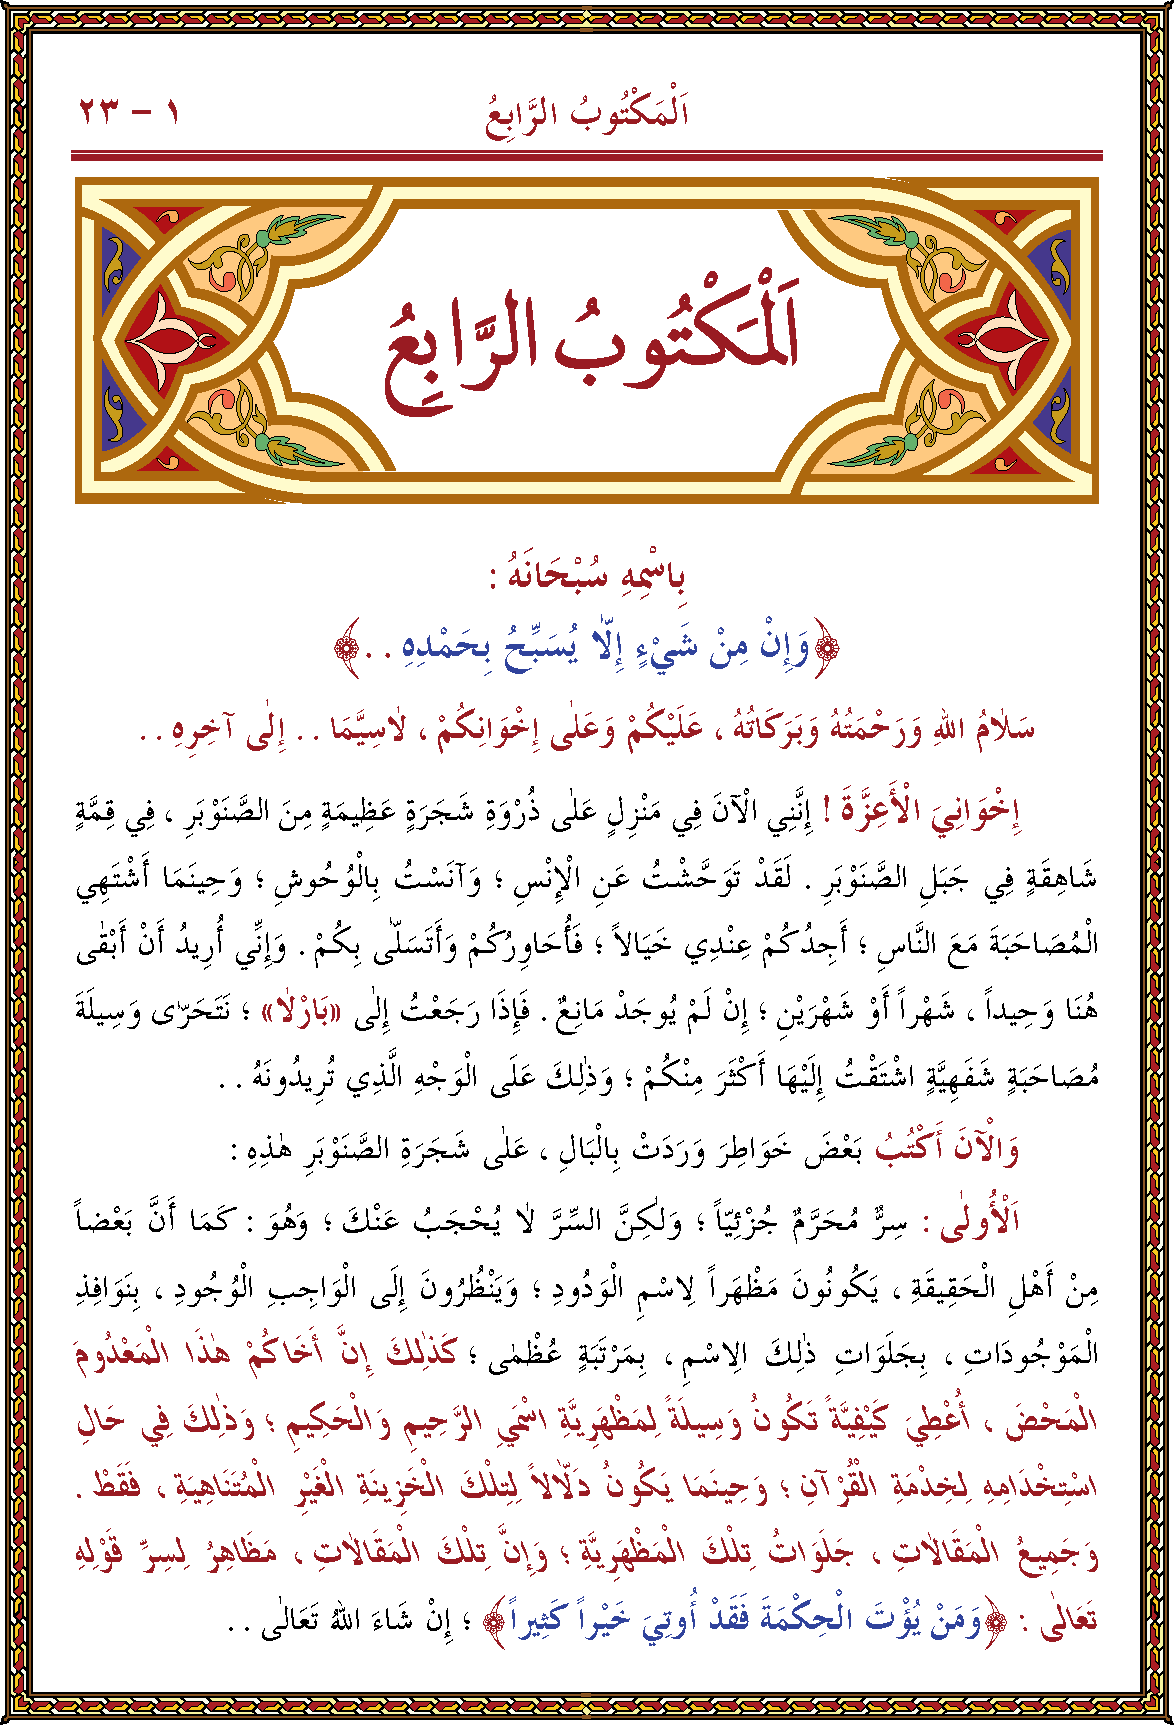 اَلْمَكْتُوبُ الرَّابِعُ
١ - ٢٣
اَلْمَكْتُوبُ الرَّابِعُ
بِاسْمِهِ سُبْحَانَهُ :
﴿وَإِنْ مِنْ شَيْءٍ إِلَّا يُسَبِّحُ بِحَمْدِهِ . .﴾
سَلَامُ اللهِ وَرَحْمَتُهُ وَبَرَكَاتُهُ ، عَلَيْكُمْ وَعَلٰى إِخْوَانِكُمْ ، لَاسِيَّمَا . . إِلٰى آخِرِهِ . .
إِخْوَانِيَ الْأَعِزَّةَ ! إِنَّنِي الْآنَ فِي مَنْزِلٍ عَلٰى ذُرْوَةِ شَجَرَةٍ عَظِيمَةٍ مِنَ الصَّنَوْبَرِ ، فِي قِمَّةٍ
شَاهِقَةٍ فِي جَبَلِ الصَّنَوْبَرِ . لَقَدْ تَوَحَّشْتُ عَنِ الْإِنْسِ ؛ وَآنَسْتُ بِالْوُحُوشِ ؛ وَحِينَمَا أَشْتَهِي
الْمُصَاحَبَةَ مَعَ النَّاسِ ؛ أَجِدُكُمْ عِنْدِي خَيَالاً ؛ فَأُحَاوِرُكُمْ وَأَتَسَلّٰى بِكُمْ . وَإِنِّي أُرِيدُ أَنْ أَبْقٰى
هُنَا وَحِيداً ، شَهْراً أَوْ شَهْرَيْنِ ؛ إِنْ لَمْ يُوجَدْ مَانِعٌ . فَإِذَا رَجَعْتُ إِلٰى «بَارْلَا» ؛ نَتَحَرّٰى وَسِيلَةَ
مُصَاحَبَةٍ شَفَهِيَّةٍ اشْتَقْتُ إِلَيْهَا أَكْثَرَ مِنْكُمْ ؛ وَذٰلِكَ عَلَى الْوَجْهِ الَّذِي تُرِيدُونَهُ . .
وَالْآنَ أَكْتُبُ بَعْضَ خَوَاطِرَ وَرَدَتْ بِالْبَالِ ، عَلٰى شَجَرَةِ الصَّنَوْبَرِ هٰذِهِ :
اَلْأُولٰى : سِرٌّ مُحَرَّمٌ جُزْئِيّاً ؛ وَلٰكِنَّ السِّرَّ لَا يُحْجَبُ عَنْكَ ؛ وَهُوَ : كَمَا أَنَّ بَعْضاً
مِنْ أَهْلِ الْحَقِيقَةِ ، يَكُونُونَ مَظْهَراً لِاسْمِ الْوَدُودِ ؛ وَيَنْظُرُونَ إِلَى الْوَاجِبِ الْوُجُودِ ، بِنَوَافِذِ
الْمَوْجُودَاتِ ، بِجَلَوَاتِ ذٰلِكَ الِاسْمِ ، بِمَرْتَبَةٍ عُظْمٰى ؛ كَذٰلِكَ إِنَّ أَخَاكُمْ هٰذَا الْمَعْدُومَ
الْمَحْضَ ، أُعْطِيَ كَيْفِيَّةً تَكُونُ وَسِيلَةً لِمَظْهَرِيَّةِ اسْمَيِ الرَّحِيمِ وَالْحَكِيمِ ؛ وَذٰلِكَ فِي حَالِ
اسْتِخْدَامِهِ لِخِدْمَةِ الْقُرْآنِ ؛ وَحِينَمَا يَكُونُ دَلَّالاً لِتِلْكَ الْخَزِينَةِ الْغَيْرِ الْمُتَنَاهِيَةِ ، فَقَطْ .
وَجَمِيعُ الْمَقَالَاتِ ، جَلَوَاتُ تِلْكَ الْمَظْهَرِيَّةِ ؛ وَإِنَّ تِلْكَ الْمَقَالَاتِ ، مَظَاهِرُ لِسِرِّ قَوْلِهِ
تَعَالٰى : ﴿وَمَنْ يُؤْتَ الْحِكْمَةَ فَقَدْ أُوتِيَ خَيْراً كَثِيراً﴾ ؛ إِنْ شَاءَ اللهُ تَعَالٰى . .